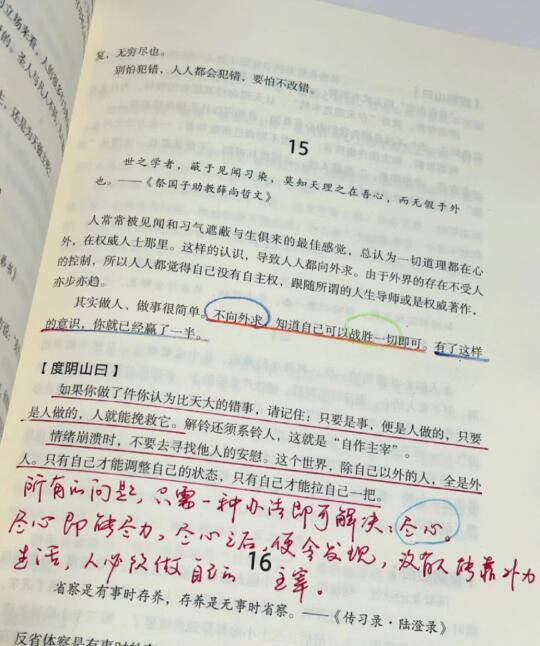 复，无穷尽也。
别怕犯错，人人都会犯错，要怕不改错。
15
世之学者，蔽于见闻习染，莫知天理之在吾心，而无假于外
也。——《祭国子助教薛尚哲文》
人常常被见闻和习气遮蔽与生俱来的最佳感觉，总认为一切道理都在心
外，在权威人士那里。这样的认识，导致人人都向外求。由于外界的存在不受人
的控制，所以人人都觉得自己没有自主权，跟随所谓的人生导师或是权威著作，
亦步亦趋。
其实做人、做事很简单。不向外求，知道自己可以战胜一切即可。有了这样
的意识，你就已经赢了一半。
【度阴山曰】
如果你做了件你认为比天大的错事，请记住：只要是事，便是人做的，只要
是人做的，人就能挽救它。解铃还须系铃人，这就是“自作主宰”。
情绪崩溃时，不要去寻找他人的安慰。这个世界，除自己以外的人，全是外
人。只有自己才能调整自己的状态，只有自己才能拉自己一把。
所有的问题，只需一种办法即可解决：尽心。
尽心即能尽力，尽心之后，便会发现，没有人能靠外力
生活，人必须做自己的主宰。
16
省察是有事时存养，存养是无事时省察。——《传习录·陆澄录》
反省体察是有事时的存